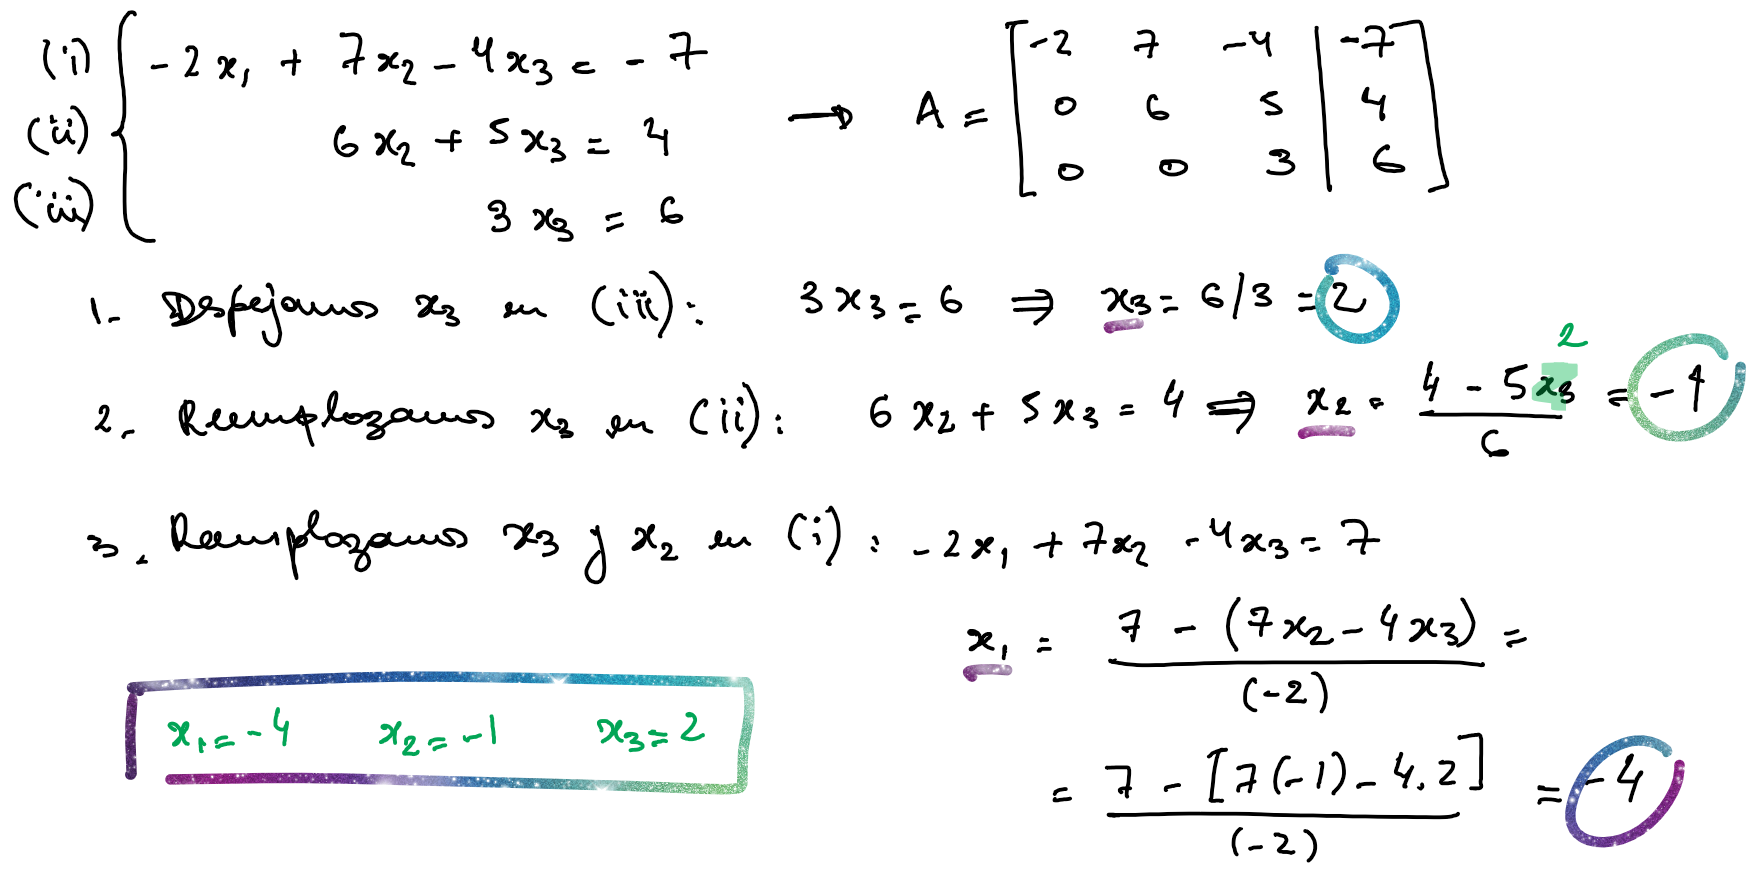 (i) -2x₁ + 7x₂ - 4x₃ = -7
(ii) 6x₂ + 5x₃ = 4
(iii) 3x₃ = 6
→ A = [ -2 7 -4 | -7
0 6 5 | 4
0 0 3 | 6 ]
1- Despejamos x₃ en (iii): 3x₃ = 6 ⇒ x₃ = 6/3 = 2
2
2- Reemplazamos x₃ en (ii): 6x₂ + 5x₃ = 4 ⇒ x₂ = (4 - 5x₃)/6 = -1
3. Reemplazamos x₃ y x₂ en (i): -2x₁ + 7x₂ - 4x₃ = 7
x₁ = (7 - (7x₂ - 4x₃))/(-2) =
= (7 - [7(-1) - 4.2])/(-2) = -4
x₁ = -4 x₂ = -1 x₃ = 2